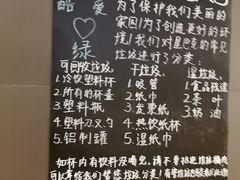 酷 爱
♡
绿
为了保护我们美丽的
家园!为了创造更好的环
境!我们对星巴克的常见
垃圾进行了分类:
可回收垃圾:
1.冷饮塑料杯
2.所有的杯盖
3.塑料瓶
4.塑料刀叉勺
5.铝制罐
干垃圾:
1.吸管
2.纸巾
3.发票纸
4.热饮纸杯
5.湿纸巾
湿垃圾:
1.食品残渣
2.茶叶
3.奶油
如杯内有饮料没喝完,请不要扔进垃圾桶
可以拿给我们帮您垃圾分类!